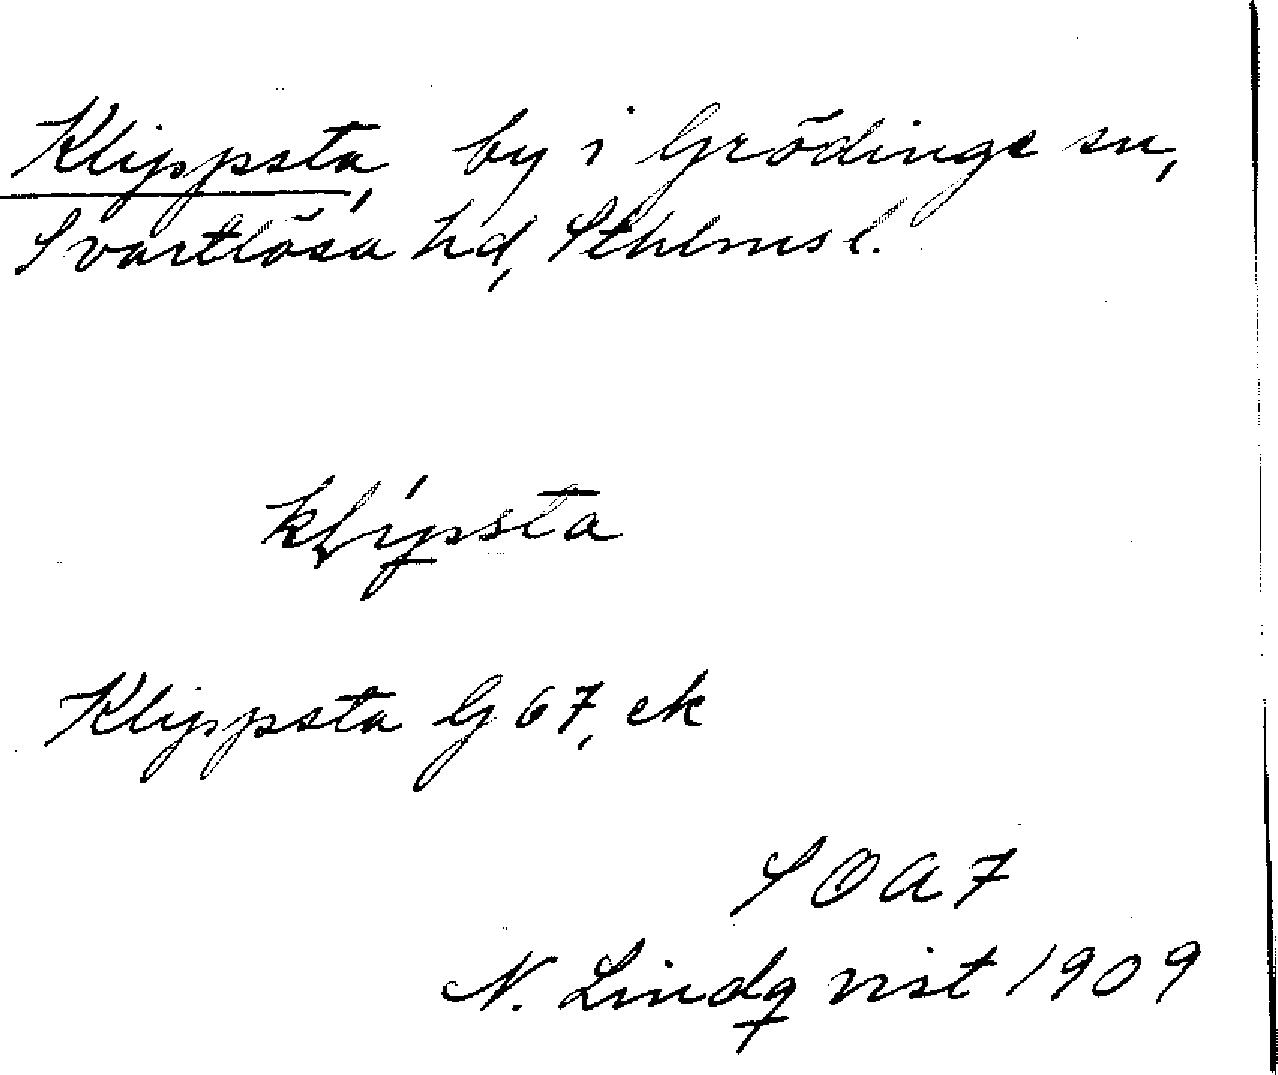 Klippsta, by i Grödinge sn,
Svartlösa hd, Sthlms l.
klípsta
Klippsta G 67, ek
SOA 7
N. Lindqvist 1909